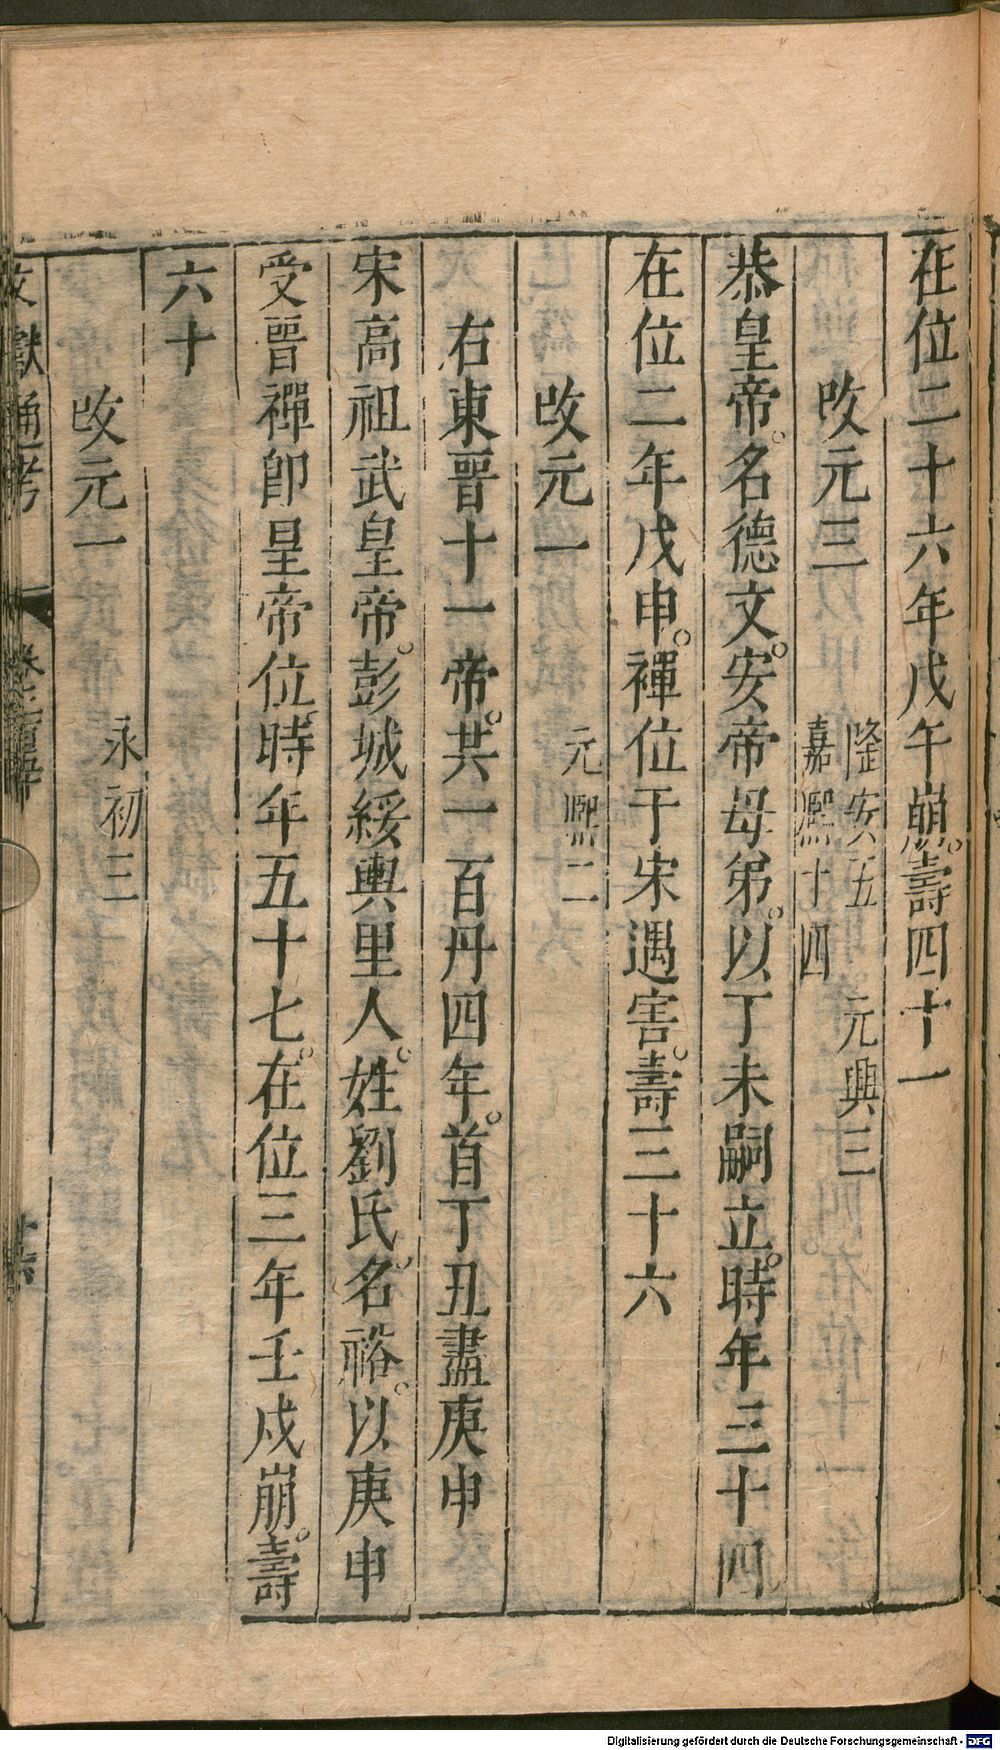 在位二十六年戊午崩。壽四十一
改元三
隆安五　元興三
嘉熈十四
恭皇帝。名德文。安帝母弟。以丁未嗣立。時年三十四
在位二年戊申。禪位于宋遇害。壽三十六
改元一
元熈二
右東晉十一帝。共一百丹四年。首丁丑盡庚申
宋高祖武皇帝。彭城綏輿里人。姓劉氏。名裕。以庚申
受晉禪卽皇帝位。時年五十七。在位三年壬戌崩。壽
六十
改元一
永初三
文獻通考
Digitalisierung gefördert durch die Deutsche Forschungsgemeinschaft - DFG